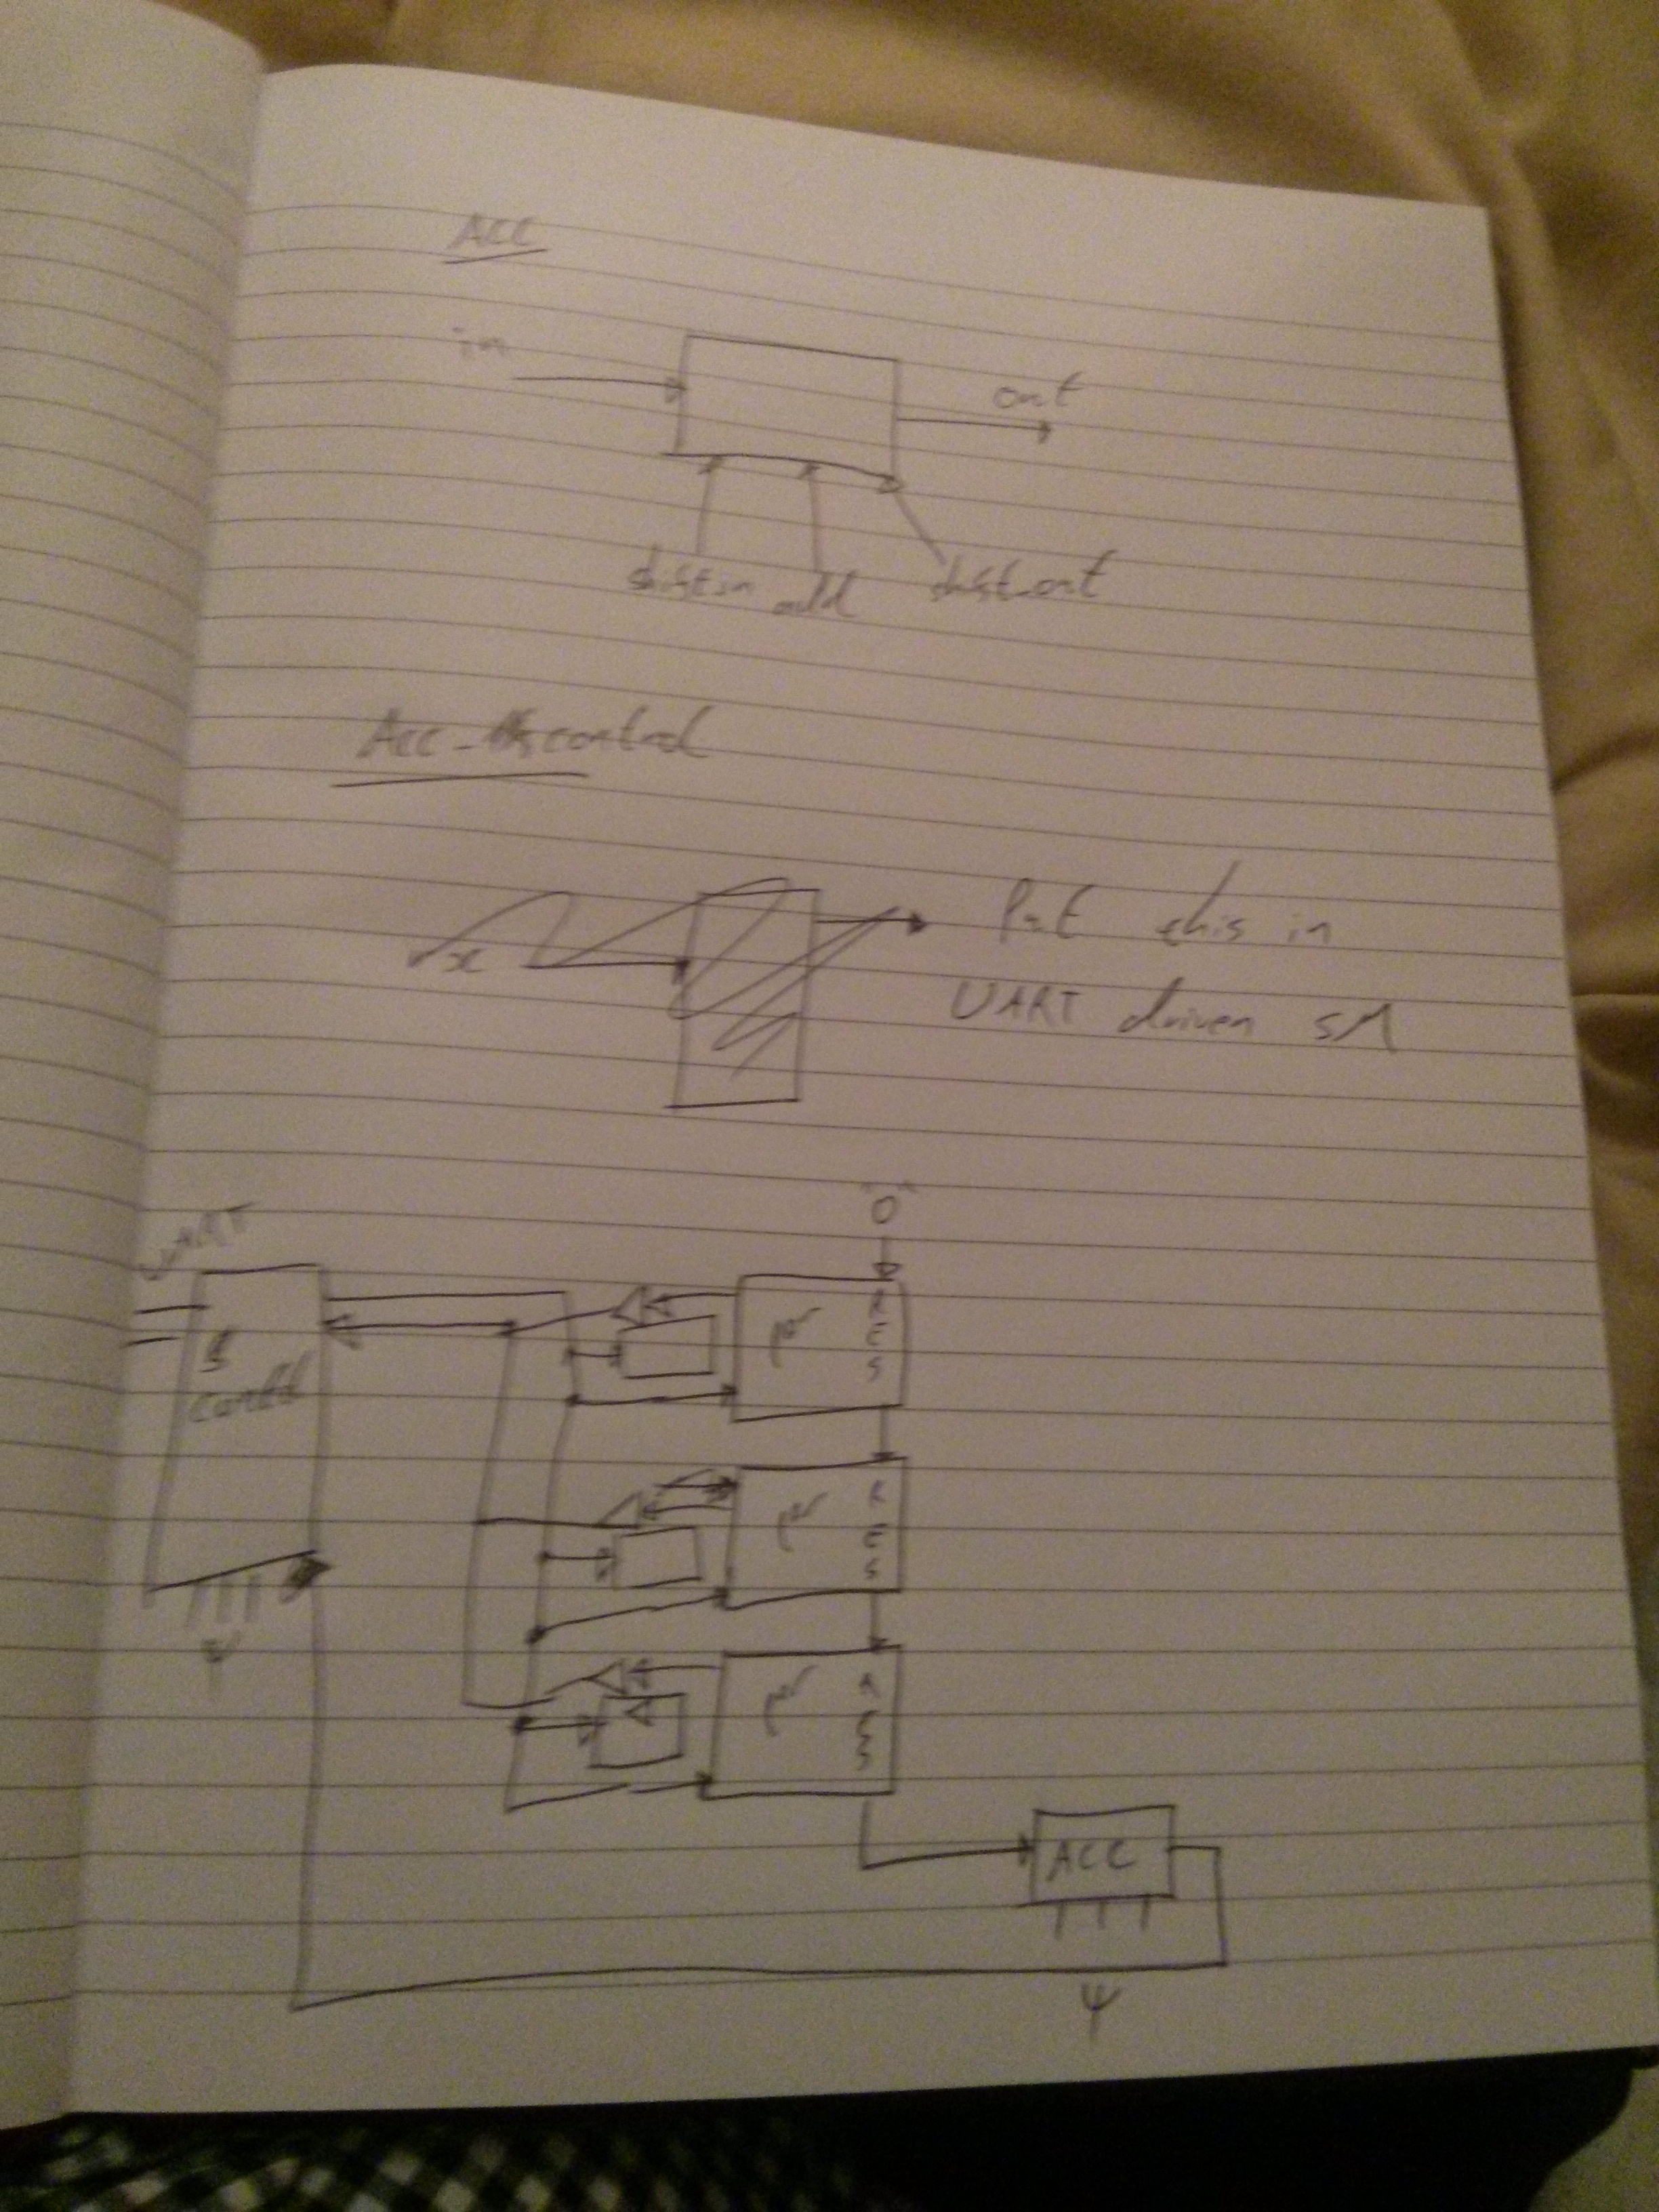 ACC
in
out
shiftin add shift_out
Acc - control
Put this in
x
UART driven SM
"0"
UART
control
RES
RES
RES
ACC
Ψ
Ψ